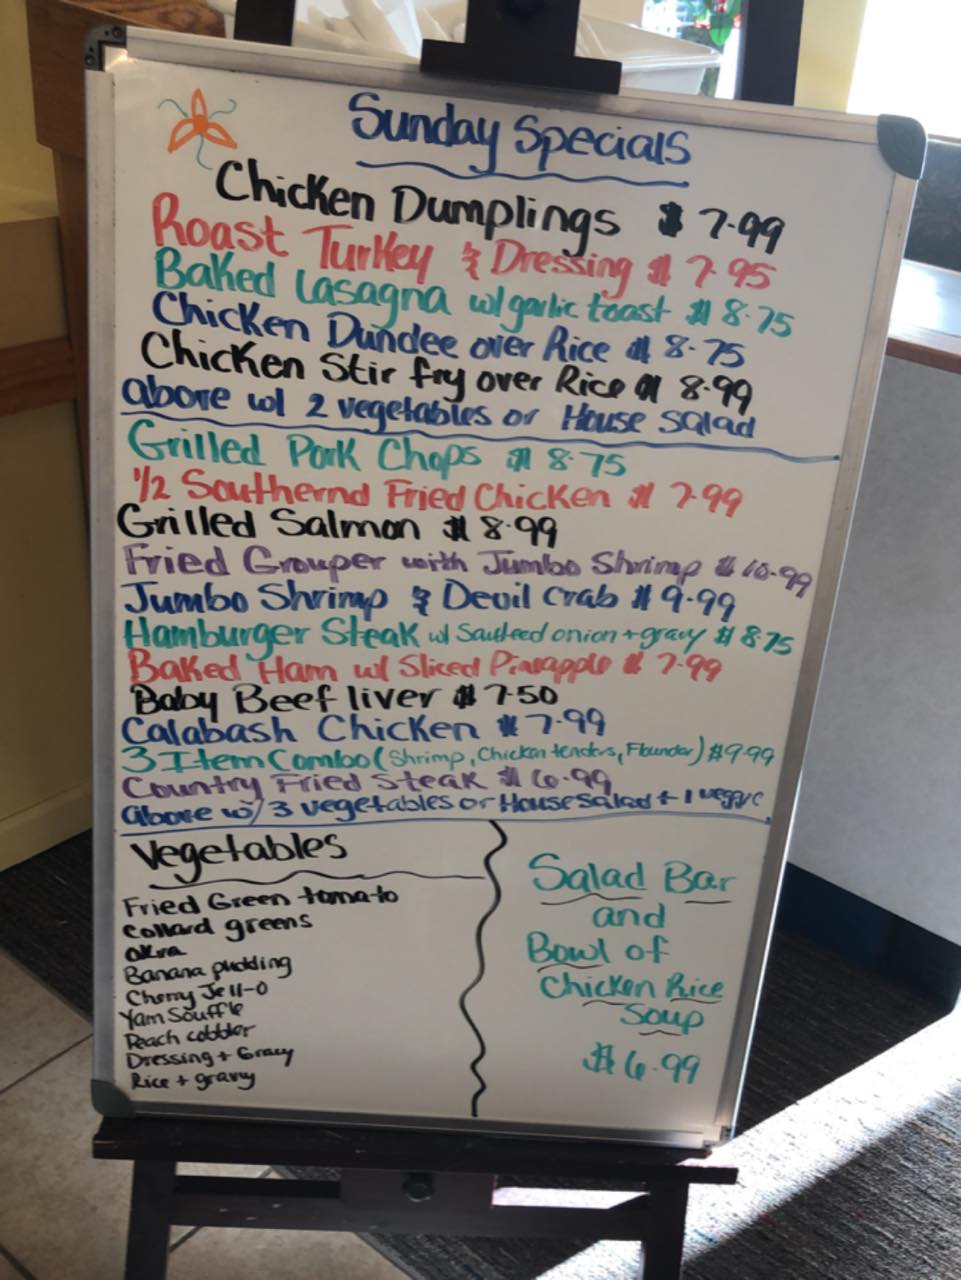 Sunday Specials
Chicken Dumplings $ 7.99
Roast Turkey & Dressing $ 7.95
Baked Lasagna w/ garlic toast $ 8.75
Chicken Dundee over Rice $ 8.75
Chicken Stir fry over Rice $ 8.99
above w/ 2 vegetables or House Salad
Grilled Pork Chops $ 8.75
1/2 Southernd Fried Chicken $ 7.99
Grilled Salmon $ 8.99
Fried Grouper with Jumbo Shrimp $ 10.99
Jumbo Shrimp & Devil crab $ 9.99
Hamburger Steak w/ Sauteed onion + gravy $ 8.75
Baked Ham w/ Sliced Pineapple $ 7.99
Baby Beef liver $ 7.50
Calabash Chicken $ 7.99
3 Item Combo (Shrimp, Chicken tenders, Flounder) $9.99
Country Fried Steak $ 6.99
above w/ 3 vegetables or House salad + 1 veggie
Vegetables
Fried Green tomato
Collard greens
okra
Banana pudding
Cherry Jell-O
Yam Souffle
Peach cobbler
Dressing + Gravy
Rice + gravy
Salad Bar
and
Bowl of
Chicken Rice
Soup
$ 6.99